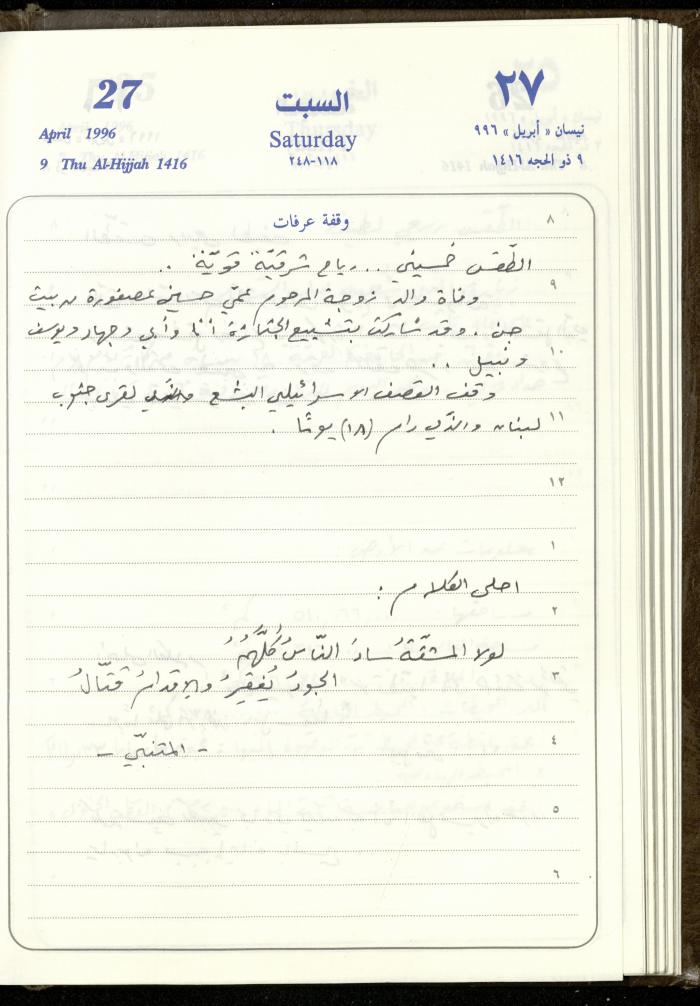 27
السبت
٢٧
April 1996
Saturday
نيسان « أبريل » ٩٩٦
9 Thu Al-Hijjah 1416
١١٨-٢٤٨
٩ ذو الحجه ١٤١٦
وقفة عرفات
٨
الطّقس خمسيني .. رياح شرقيّة قويّة ..
٩
وفاة والد زوجة المرحوم عمّي حسين عصفورة من بيت
جن . وقد شاركت بتشييع الجنازة أنا وأبي وجهاد ويوسف
١٠
ونبيل ..
وقف القصف الاسرائيلي البشع لقرى جنوب
١١
لبنان والذي دام (١٨) يومًا .
١٢
١
احلى الكلام :
٢
لولا المشقّةُ سادَ النّاسُ كُلُّهُمُ
٣
الجودُ يُفقِرُ والإقدامُ قتّالُ
٤
- المتنبّي -
٥
٦